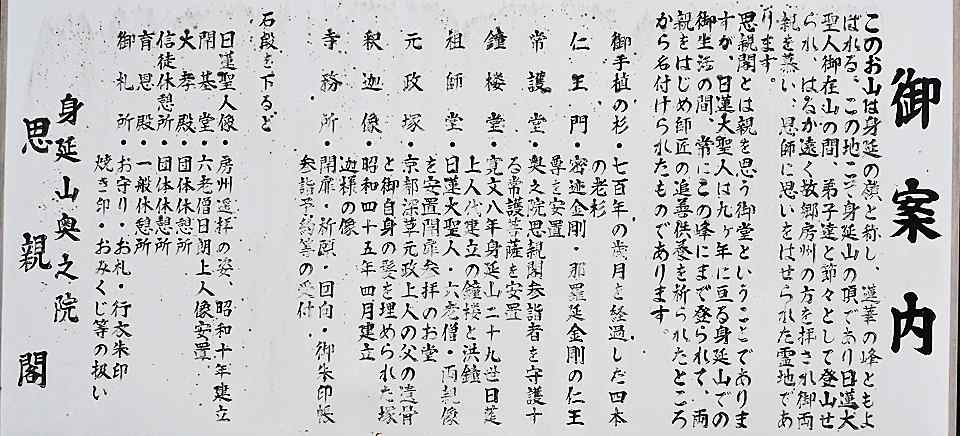 御案内
このお山は身延の嶽と称し、蓮華の峰ともよ
ばれる。この地こそ身延山の頂であり日蓮大
聖人御在山の間、弟子達と節々として登山せ
られ、はるか遠く故郷房州の方を拝され御両
親を慕い、恩師に思いをはせられた霊地であ
ります。
思親閣とは親を思う御堂ということでありま
すが、日蓮大聖人は九ヶ年に亘る身延山での
御生活の間、常にこの峰にまで登られて、両
親をはじめ師匠の追善供養を祈られたところ
から名付けられたものであります。
御手植の杉・七百年の歳月を経過した四本
の老杉
仁王門・密迹金剛・那羅延金剛の仁王
尊を安置
常護堂・奥之院思親閣参詣者を守護す
る常護菩薩を安置
鐘楼堂・寛文八年身延山二十九世日莚
上人代建立の鐘楼と洪鐘
祖師堂・日蓮大聖人・六老僧・両親像
を安置開扉参拝のお堂
元政塚・京都深草元政上人の父の遺骨
と御自身の髪を埋められた塚
釈迦像・昭和四十五年四月建立
迦様の像
寺務所・開扉・祈願・回向・御朱印帳
参詣予約等の受付
石段を下ると
日蓮聖人像・房州遥拝の姿、昭和十年建立
開基堂・六老僧日朗上人像安置
大孝殿・団体休憩所
信徒休憩所・団体休憩所
育恩殿・一般休憩所
御札所・お守り・お札・行衣朱印
焼き印・おみくじ等の扱い
身延山奥之院
思親閣